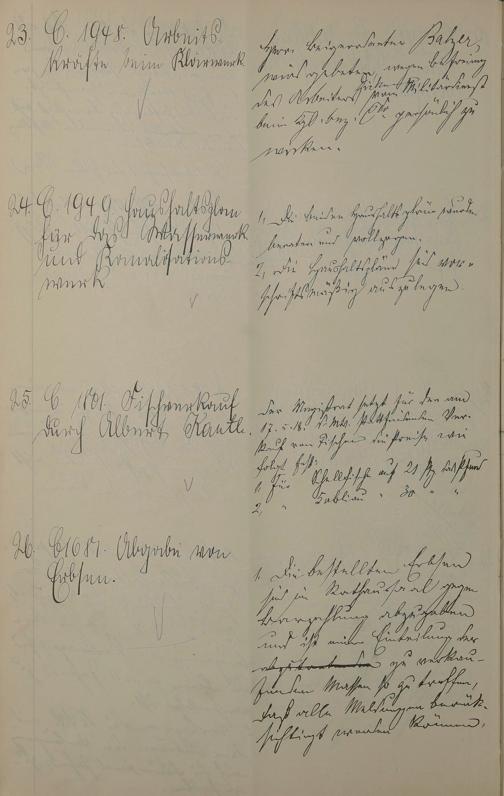 23. C. 1948. Arbeits-
kräfte beim Klärwerk
Herr Beigeordneter Balzer
wird gebeten, wegen Befreiung
des Arbeiters vom Militärdienst
beim persönlich zu
wirken.
24. C. 1949. Haushaltsplan
für das Wasserwerk
und Kanalisations-
werk.
1, Die beiden Haushaltspläne wurden
beraten und vollzogen.
2, Die Haushaltspläne sind vor-
schriftsmäßig auszulegen.
25. C 1801. Fischverkauf
durch Albert
Der Magistrat setzt für den am
17. u. 18. d. Mts. stattfindenden Ver-
kauf von Fischen die Preise wie
folgt fest:
1, Für Schellfische auf
2, " Kabliau " 30 " "
26. C1681. Abgabe von
Erbsen.
1. Die bestellten Erbsen
sind im Rathaussaal gegen
Barzahlung abzugeben
und ist eine Einteilung der
zu verkau-
fenden Massen so zu treffen,
daß alle Meldungen berück-
sichtigt werden können.